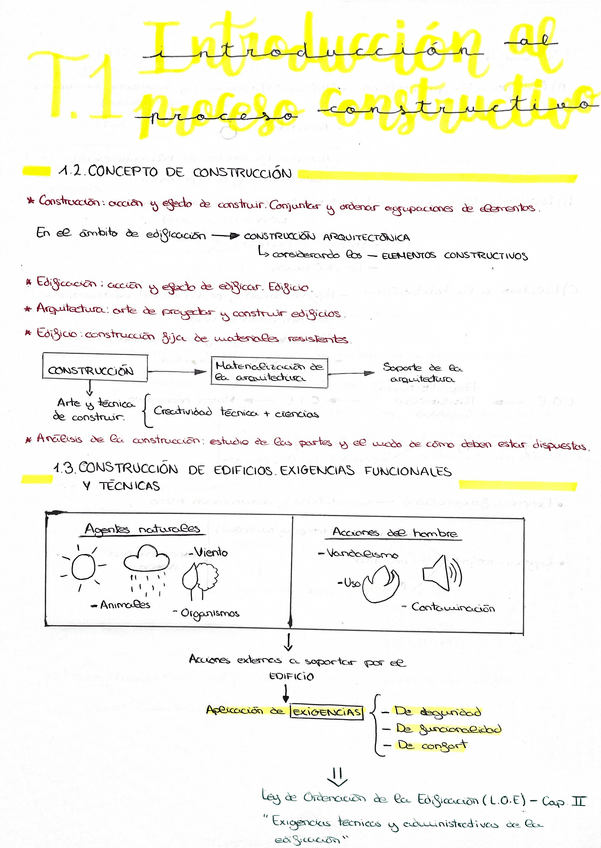 T.1 Introducción al
proceso constructivo
introducción al
proceso constructivo
1.2. CONCEPTO DE CONSTRUCCIÓN
* Construcción: acción y efecto de construir. Conjuntar y ordenar agrupaciones de elementos.
En el ámbito de edificación → CONSTRUCCIÓN ARQUITECTÓNICA
↳ considerando los — ELEMENTOS CONSTRUCTIVOS
* Edificación: acción y efecto de edificar. Edificio.
* Arquitectura: arte de proyectar y construir edificios.
* Edificio: construcción fija de materiales resistentes.
CONSTRUCCIÓN → Materialización de la arquitectura → Soporte de la arquitectura
Arte y técnica
de construir. { Creatividad técnica + ciencias
* Análisis de la construcción: estudio de las partes y el modo de cómo deben estar dispuestas.
1.3. CONSTRUCCIÓN DE EDIFICIOS. EXIGENCIAS FUNCIONALES
Y TÉCNICAS
Agentes naturales
- Viento
- Animales
- Organismos
Acciones del hombre
- Vandalismo
- Uso
- Contaminación
Acciones externas a soportar por el
EDIFICIO
Aplicación de EXIGENCIAS
- De seguridad
- De funcionalidad
- De confort
Ley de Ordenación de la Edificación (L.O.E) - Cap II
"Exigencias técnicas y administrativas de la
edificación"